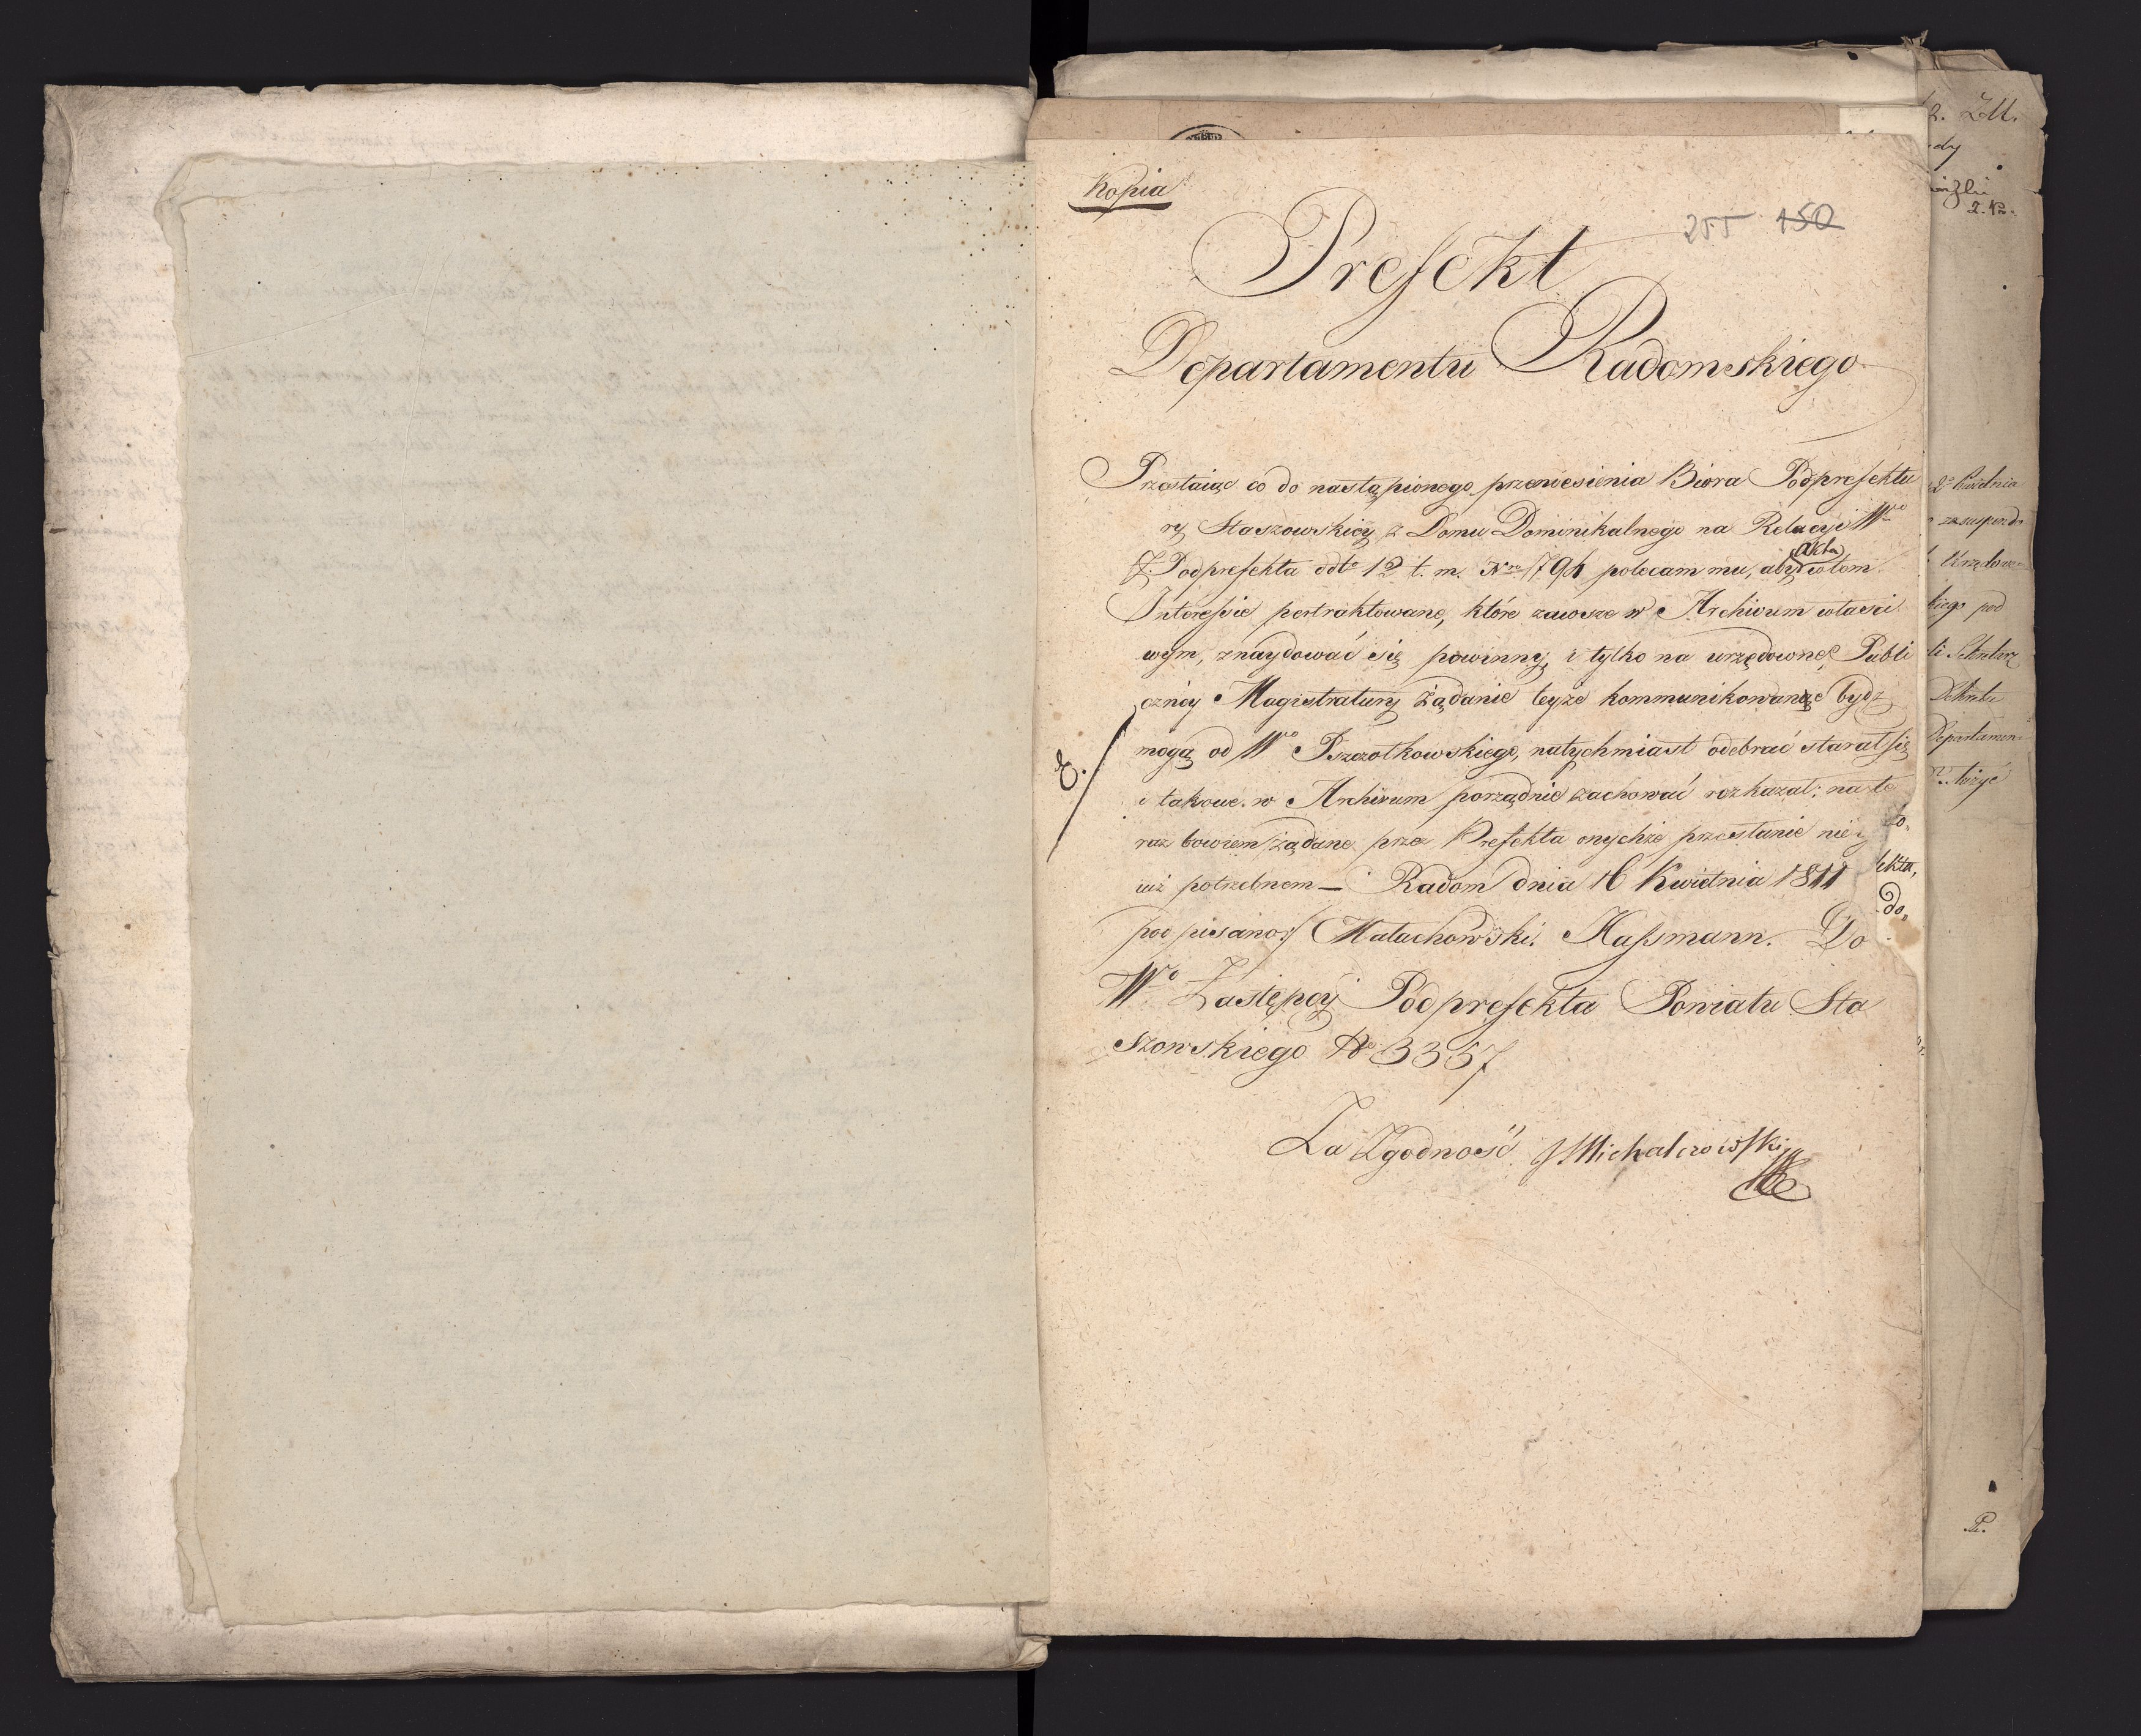 Kopia
255 150
Prefekt
Departamentu Radomskiego
Przestaiąc co do nastąpionego przeniesienia Biora Podprefektu
ry Staszowskiey z Domu Dominikalnego na Relacyi Wgo
Z. Podprefekta ddto 12 t. m. Nro 794 polecam mu, aby akta w tem
Interessie pertraktowane, które zawsze w Archivum właści
wym, znaydować się powinny, i tylko na urzędowne Publi
czney Magistratury żądanie teyże kommunikowane bydz
mogą od Wgo Pszczołkowskiego, natychmiast odebrać starał się
E.
i takowe w Archivum porządnie zachować rozkazał: na te
raz bowiem żądane przez Prefekta onychże przesłanie nie
iuż potrzebnem — Radom dnia 16 Kwietnia 1811
podpisano:/ Małachowski. Hassmann. Do
Wo Zastępcy Podprefekta Powiatu Sta
szowskiego No 3357
Za Zgodność J Michalczowski
2. ZM.
dy
2o Kwietnia
zasuspendo
Urzędowa
kiego pod
li Sekretarz
Dekretu
Departamen
łożyć
fekta,
do„
P.